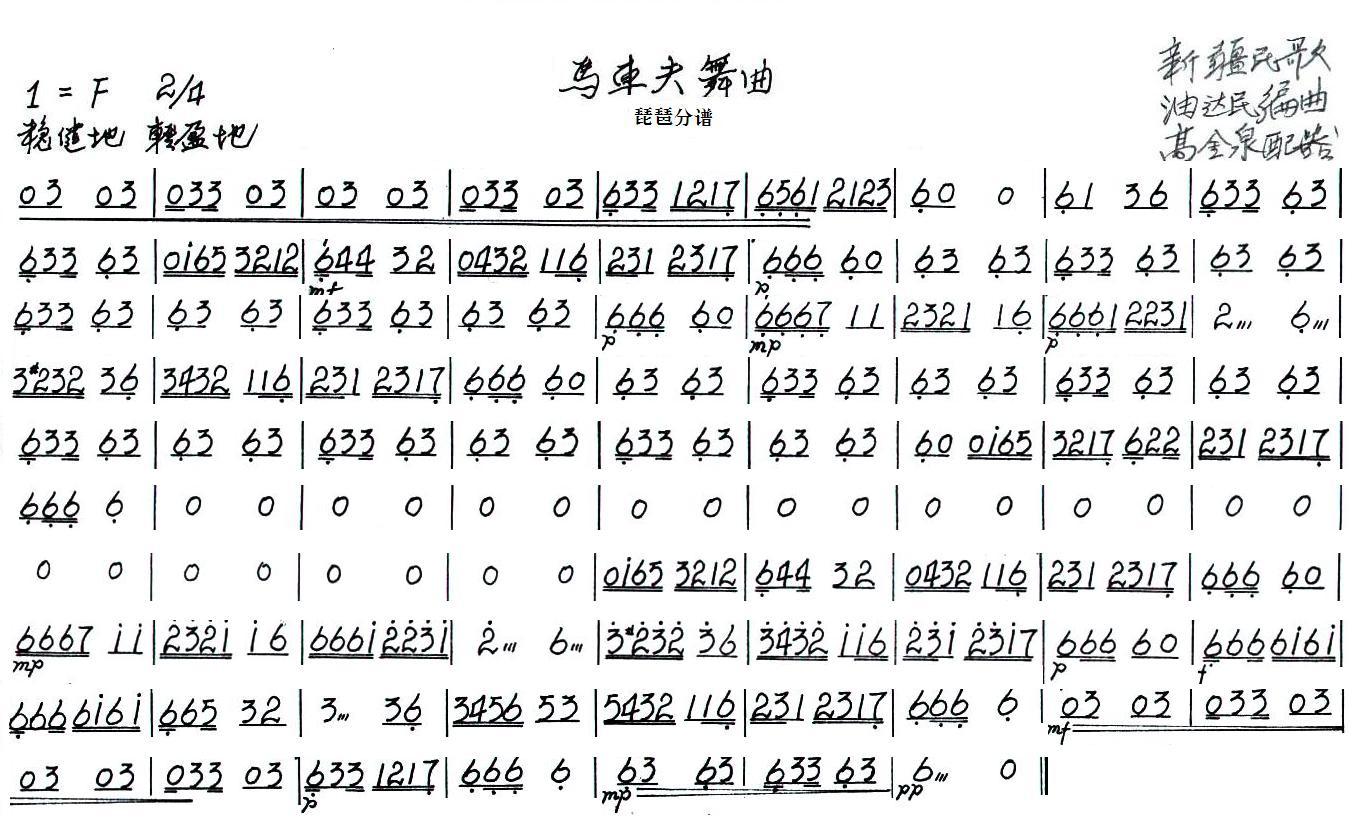 马車夫舞曲
琵琶分谱
1 = F 2/4
稳健地 轻盈地
新疆民歌
油达民编曲
高金泉配器
03 03 | 033 03 | 03 03 | 033 03 | 6̣33 1217̣ | 6̣5̣6̣1 2123 | 6̣0 0 | 6̣1 36 | 6̣33 6̣3 |
6̣33 6̣3 | 0i65 3212 | 6̣44 32 | 0432 116̣ | 231 2317̣ | 6̣6̣6̣ 6̣0 | 6̣3 6̣3 | 6̣33 6̣3 | 6̣3 6̣3 |
mf p
6̣33 6̣3 | 6̣3 6̣3 | 6̣33 6̣3 | 6̣3 6̣3 | 6̣6̣6̣ 6̣0 | 6̣6̣6̣7̣ 11 | 2321 16̣ | 6̣6̣6̣1 2231 | 2〃 6̣〃 |
p mp p
3#232 36̣ | 3432 116̣ | 231 2317̣ | 6̣6̣6̣ 6̣0 | 6̣3 6̣3 | 6̣33 6̣3 | 6̣3 6̣3 | 6̣33 6̣3 | 6̣3 6̣3 |
6̣33 6̣3 | 6̣3 6̣3 | 6̣33 6̣3 | 6̣3 6̣3 | 6̣33 6̣3 | 6̣3 6̣3 | 6̣0 0i65 | 3217̣ 6̣22 | 231 2317̣ |
6̣6̣6̣ 6̣ | 0 0 | 0 0 | 0 0 | 0 0 | 0 0 | 0 0 | 0 0 | 0 0 |
0 0 | 0 0 | 0 0 | 0 0 | 0i65 3212 | 6̣44 32 | 0432 116̣ | 231 2317̣ | 6̣6̣6̣ 6̣0 |
6667 ii | 2̇3̇2̇i i6 | 666i 2̇2̇3̇i | 2̇〃 6〃 | 3̇#2̇3̇2̇ 3̇6 | 3̇4̇3̇2̇ ii6 | 2̇3̇i 2̇3̇i7 | 666 60 | 666 6i6i |
mp p f
666 6i6i | 665 32 | 3〃 36̣ | 3456 53 | 5432 116̣ | 231 2317̣ | 6̣6̣6̣ 6̣ | 03 03 | 033 03 |
mf
03 03 | 033 03 | 6̣33 1217̣ | 6̣6̣6̣ 6̣ | 6̣3 6̣3 | 6̣33 6̣3 | 6̣〃 0 ‖
p mp pp